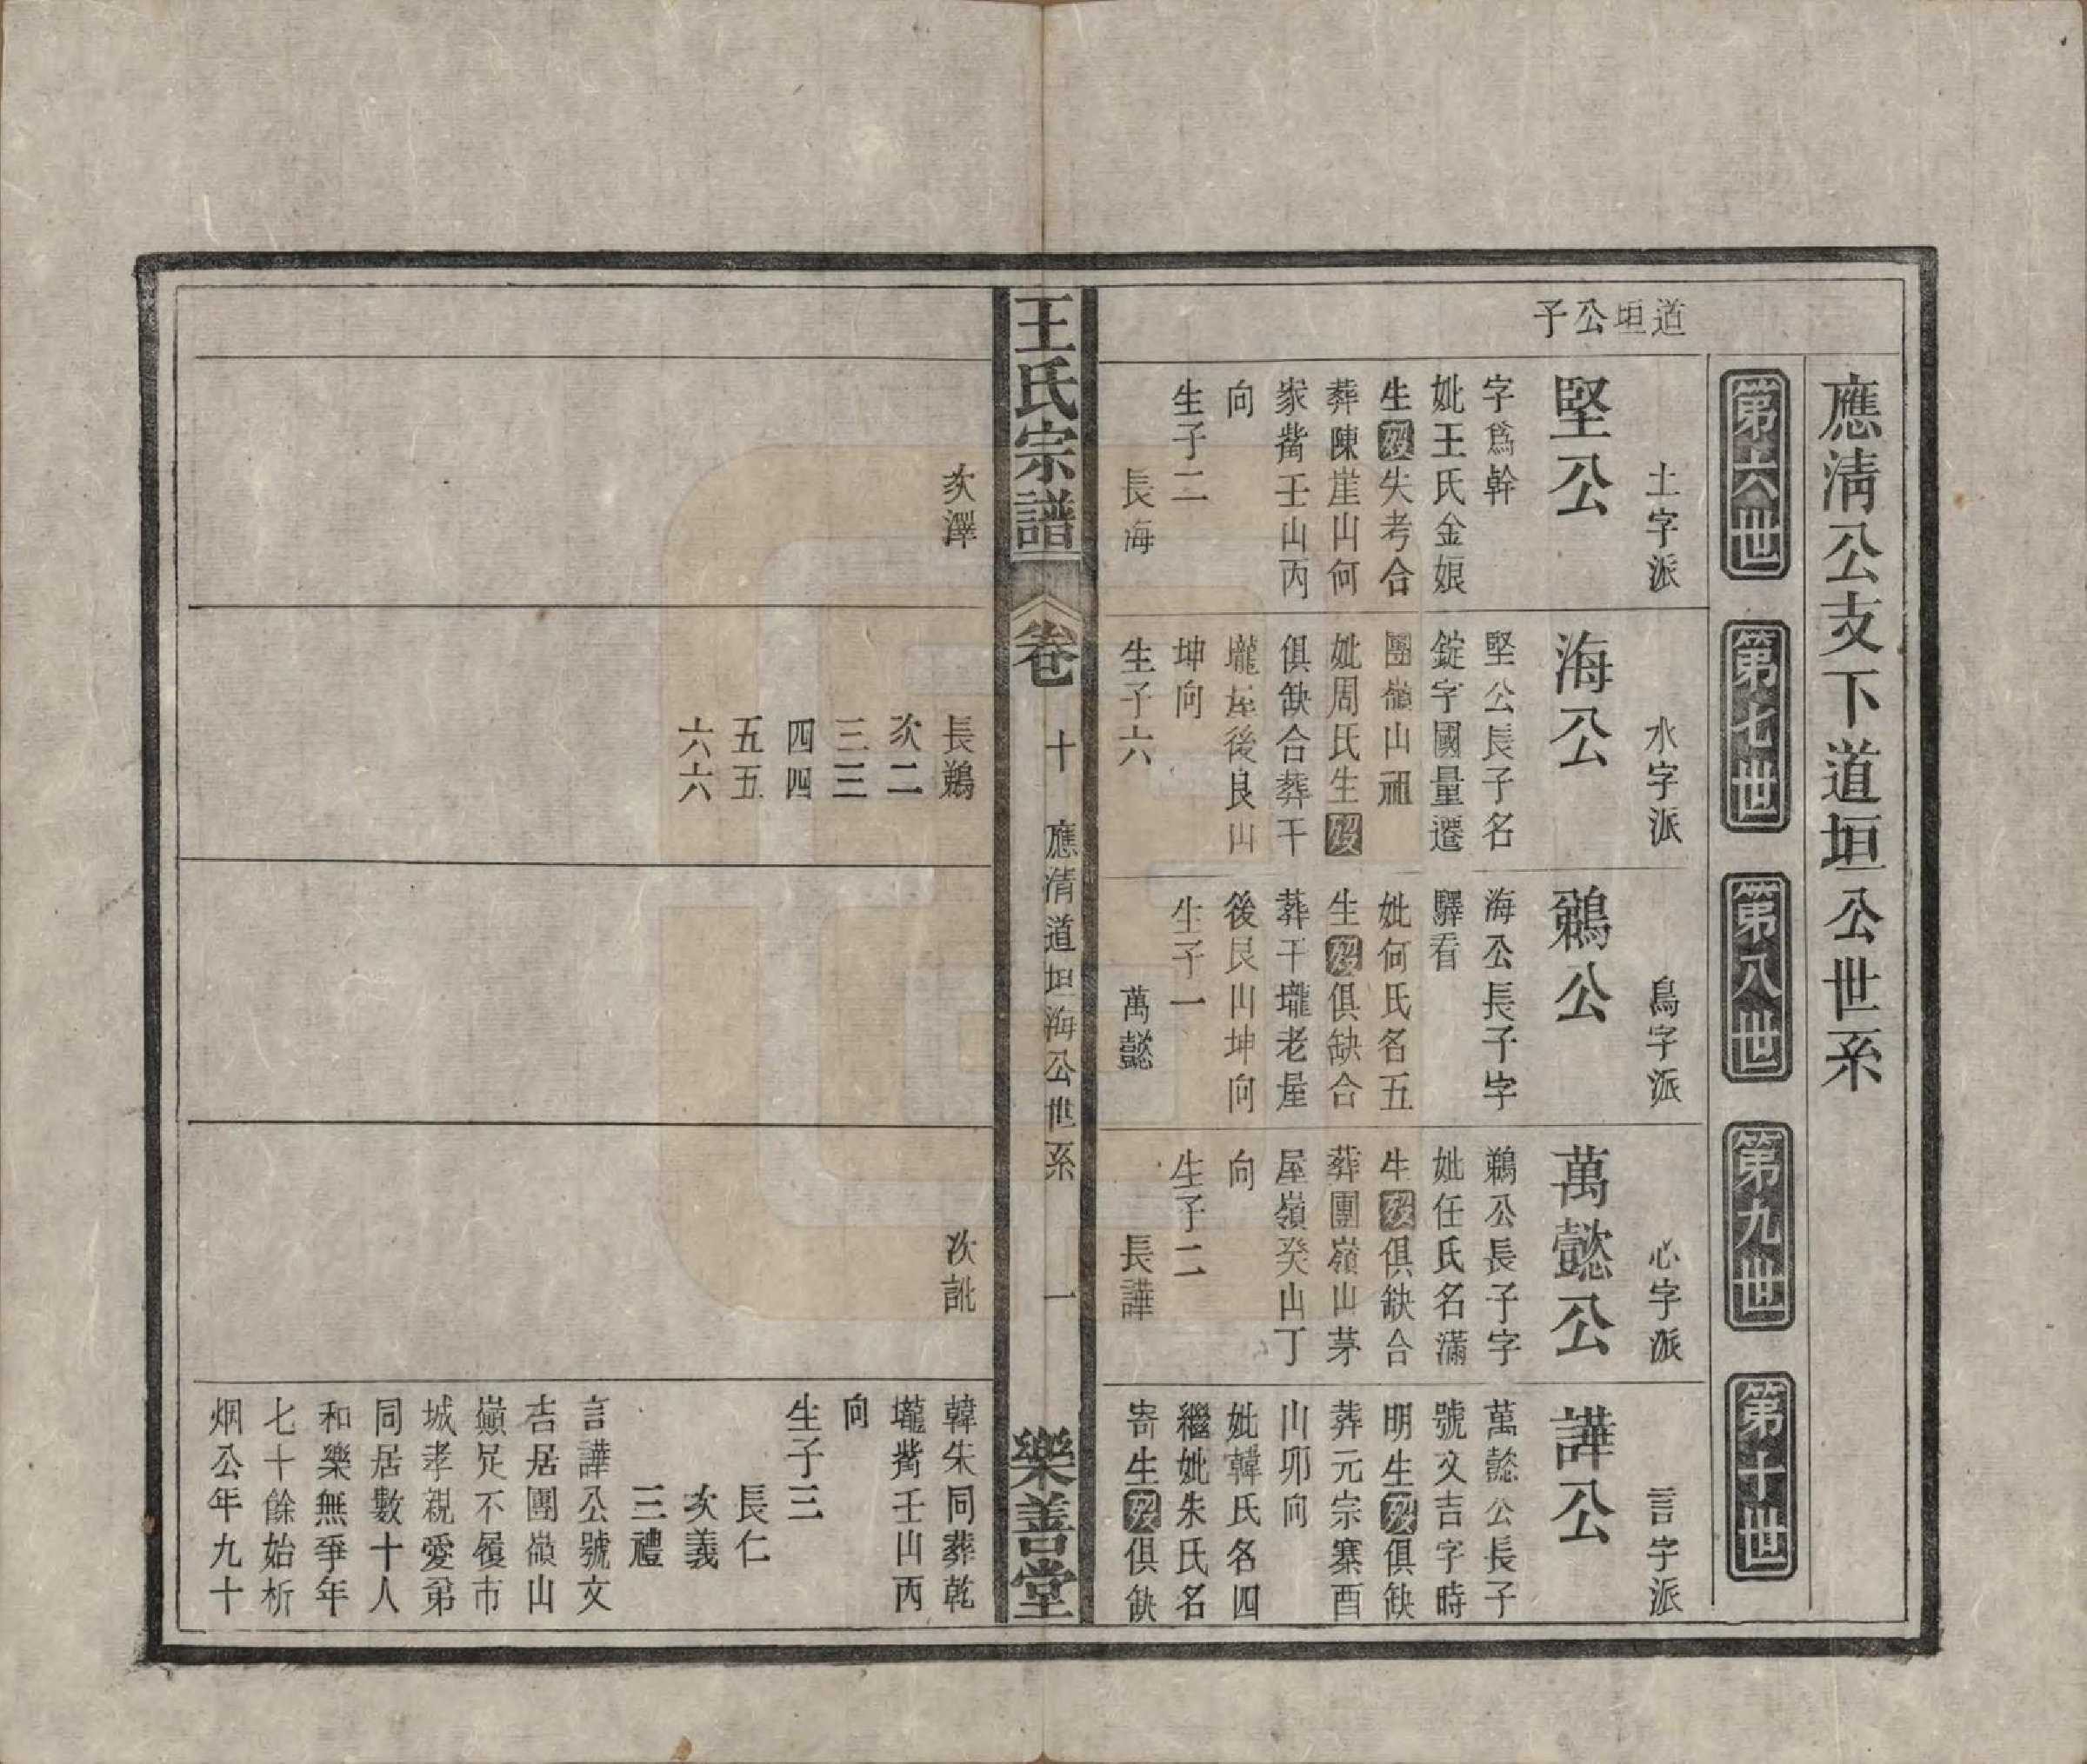 應清公支下道垣公世系
第六世
第七世
第八世
第九世
第十世
道垣公子
土字派
堅公
字爲幹
妣王氏金娘
生歿失考合
葬陳崖山何
家嘴壬山丙
向
生子二
長海
次澤
水字派
海公
堅公長子名
錠字國量遷
團嶺山祖
妣周氏生歿
俱缺合葬干
壠屋後艮山
坤向
生子六
長鵜
次二
三三
四四
五五
六六
鳥字派
鵜公
海公長子字
驛看
妣何氏名五
生歿俱缺合
葬干壠老屋
後艮山坤向
生子一
萬懿
心字派
萬懿公
鵜公長子字
妣任氏名滿
生歿俱缺合
葬團嶺山茅
屋嶺癸山丁
向
生子二
長譁
次訿
言字派
譁公
萬懿公長子
號文吉字時
明生歿俱缺
葬元宗寨酉
山卯向
妣韓氏名四
繼妣朱氏名
寄生歿俱缺
韓朱同葬乾
壠嘴壬山丙
向
生子三
長仁
次義
三禮
言譁公號文
吉居團嶺山
巔足不履市
城孝親愛弟
同居數十人
和樂無爭年
七十餘始析
烟公年九十
王氏宗譜
卷十
應清道垣海公世系
一
樂善堂